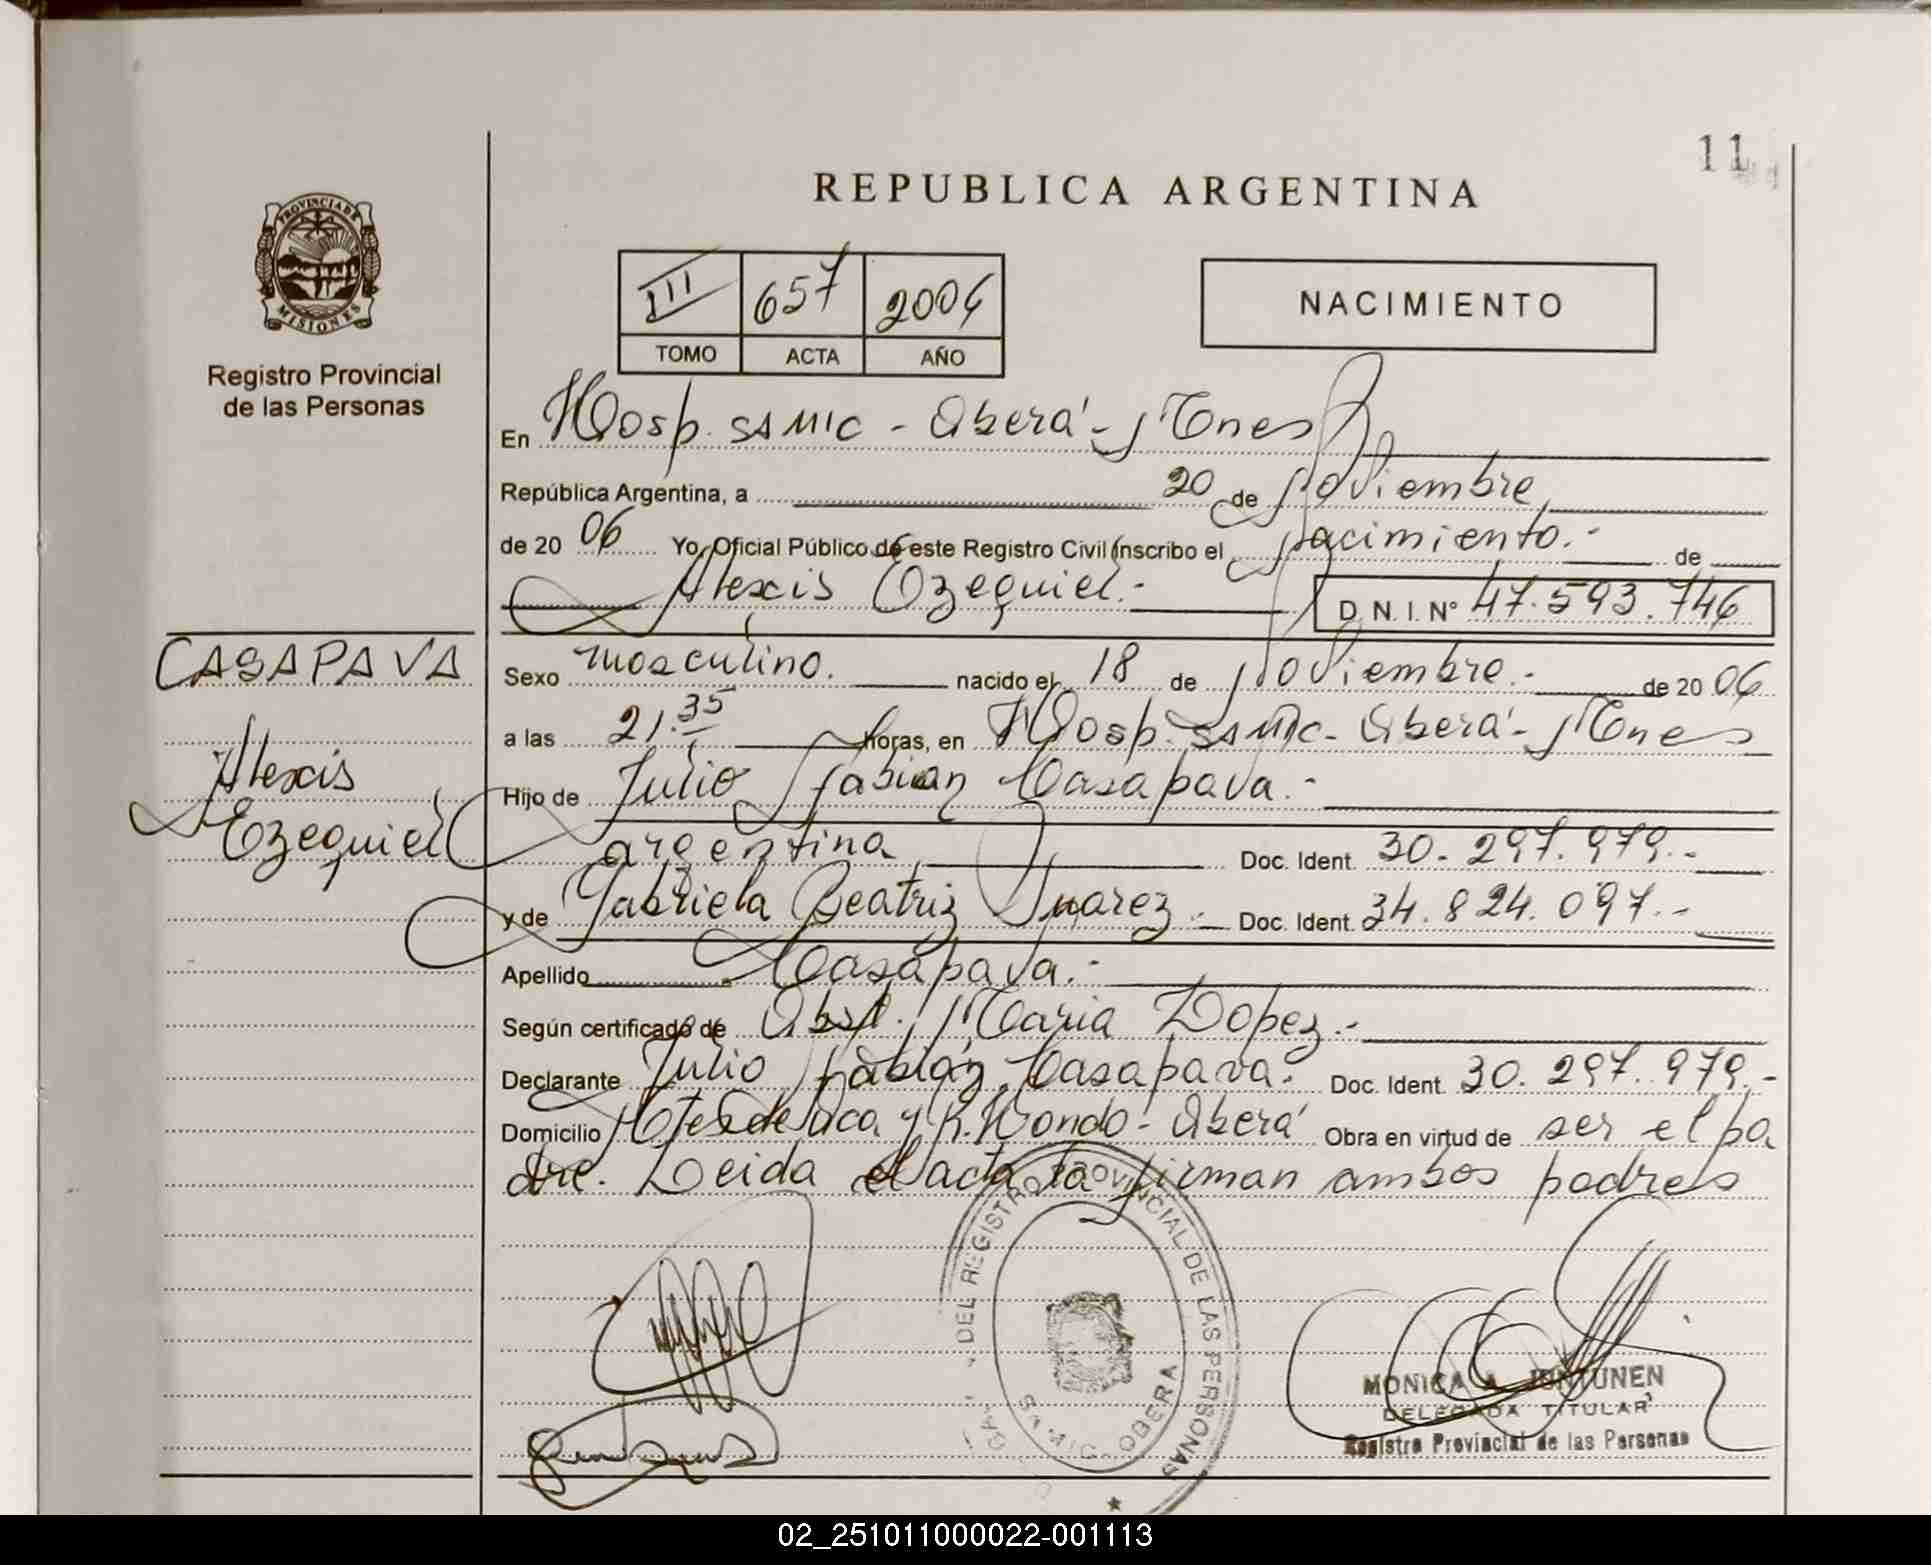 11
REPUBLICA ARGENTINA
PROVINCIA DE
MISIONES
Registro Provincial
de las Personas
III 657 2006
TOMO ACTA AÑO
NACIMIENTO
En Hosp. SAMIC - Oberá - Mnes
República Argentina, a 20 de Noviembre
de 2006 Yo, Oficial Público de este Registro Civil inscribo el Nacimiento.- de
Alexis Ezequiel.- D. N. I. Nº 47.593.746
CASAPAVA
Alexis
Ezequiel
Sexo masculino. nacido el 18 de Noviembre.- de 2006
a las 21.35 horas, en Hosp. SAMIC - Oberá - Mnes
Hijo de Julio Fabian Casapava.-
argentina Doc. Ident. 30.297.979.-
y de Gabriela Beatriz Suarez.- Doc. Ident. 34.824.097.-
Apellido Casapava.-
Según certificado de Obst. Maria Lopez.-
Declarante Julio Fabián Casapava. Doc. Ident. 30.297.979.-
Domicilio y Oberá Obra en virtud de ser el pa
dre. Leida el acta la firman ambos padres
DEL REGISTRO PROVINCIAL DE LAS PERSONAS
SAMIC - OBERA
MONICA A. JUNTUNEN
DELEGADA TITULAR
Registro Provincial de las Personas
02_251011000022-001113